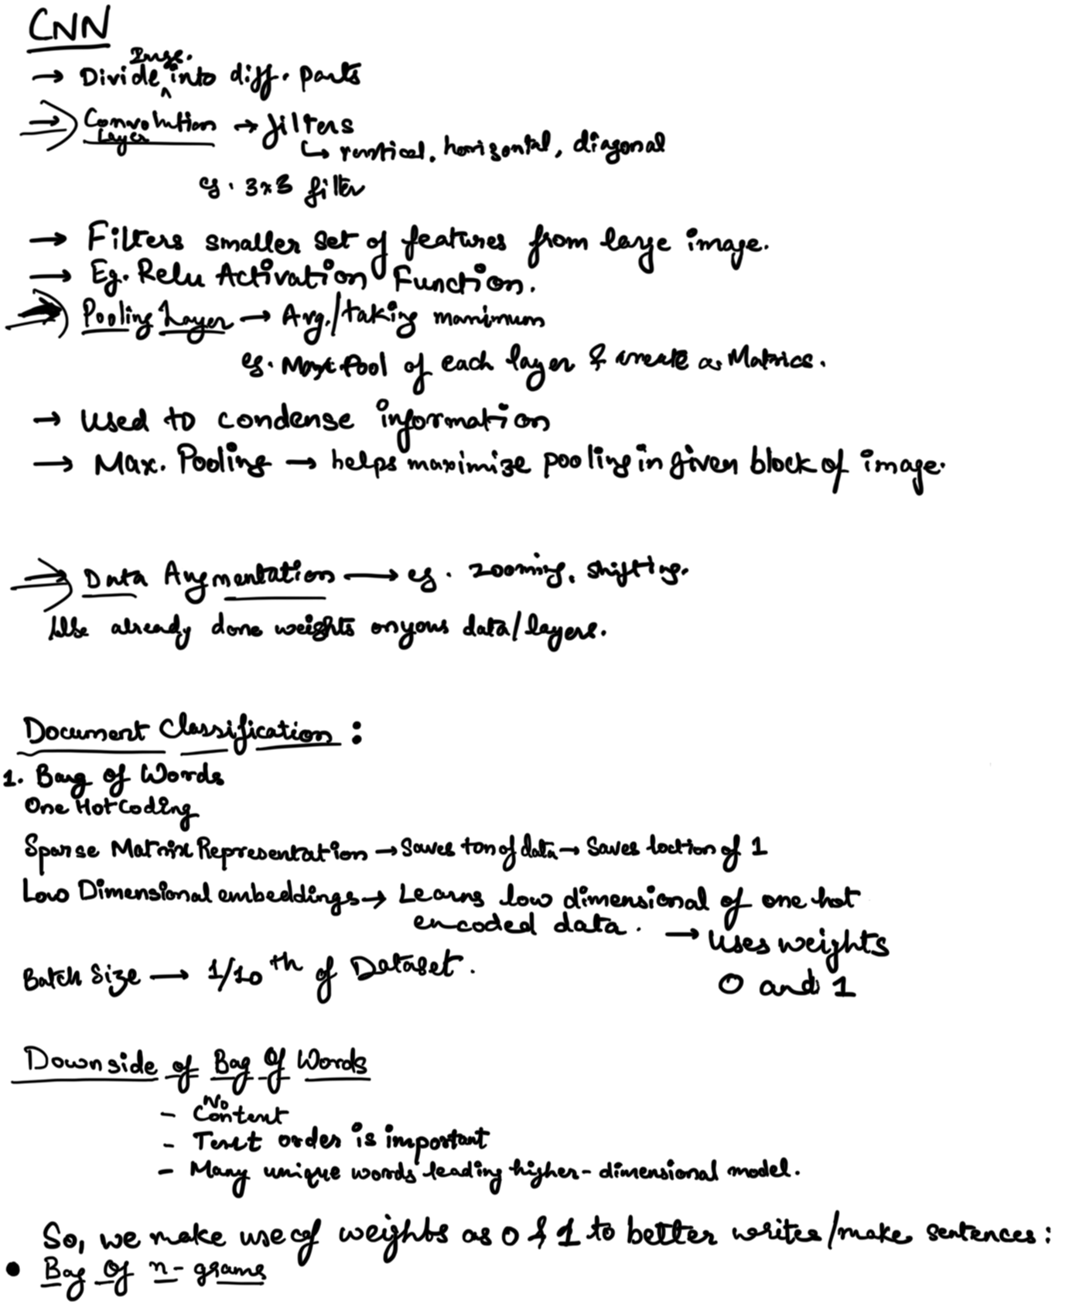 CNN
→ Divide Image into diff. parts
→ Convolution Layer → filters
↳ vertical, horizontal, diagonal
eg. 3x3 filter
→ Filters smaller set of features from large image.
→ Eg. Relu Activation Function.
→ Pooling Layer → Avg./taking maximum
eg. Max Pool of each layer & create a Matrics.
→ Used to condense information
→ Max. Pooling → helps maximize pooling in given block of image.
⇒ Data Augmentation → eg. zooming, shifting.
Use already done weights on your data/layers.
Document Classification :
1. Bag of Words
One Hot Coding
Sparse Matrix Representation → Saves ton of data → Saves loction of 1
Low Dimensional embeddings → Learns low dimensional of one hot
encoded data. → Uses weights
0 and 1
Batch Size → 1/10th of Dataset.
Downside of Bag Of Words
- No Context
- Text order is important
- Many unique words leading higher-dimensional model.
So, we make use of weights as 0 & 1 to better writes/make sentences:
• Bag Of n-grams